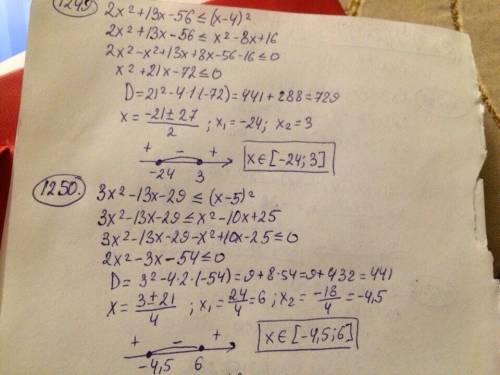 1249. 2x²+13x-56≤(x-4)²
2x²+13x-56≤x²-8x+16
2x²-x²+13x+8x-56-16≤0
x²+21x-72≤0
D=21²-4·1·(-72)=441+288=729
x=(-21±27)/2; x₁=-24; x₂=3
+ - +
-24 3 x∈[-24;3]
1250. 3x²-13x-29≤(x-5)²
3x²-13x-29≤x²-10x+25
3x²-13x-29-x²+10x-25≤0
2x²-3x-54≤0
D=3²-4·2·(-54)=9+8·54=9+432=441
x=(3±21)/4; x₁=24/4=6; x₂=-18/4=-4,5
+ - +
-4,5 6 x∈[-4,5;6]